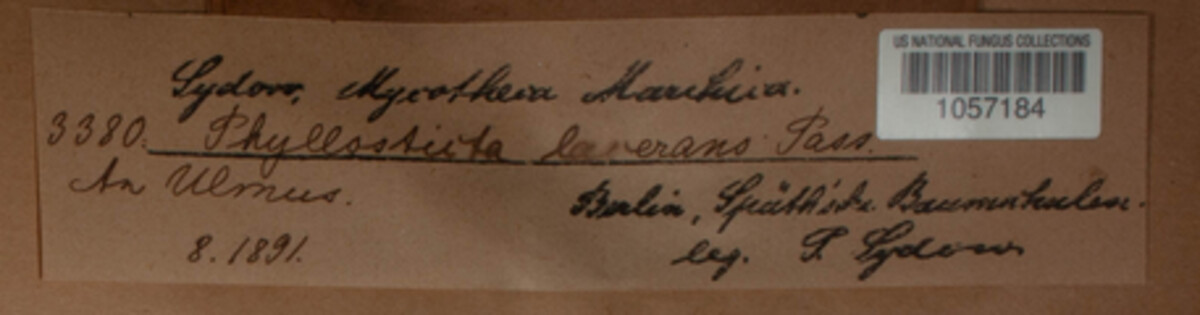 US NATIONAL FUNGUS COLLECTIONS
1057184
Sydow, Mycotheca Marchica.
3380. Phyllosticta lacerans Pass.
An Ulmus.
Berlin, Späth'sche Baumschulen.
8. 1891.
leg. P. Sydow